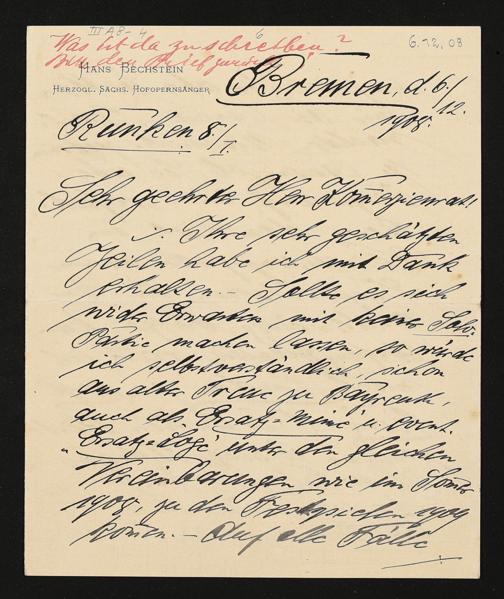 III A 8 - 4
6
6.12.08
Was ist da zu schreiben?
Bitte den Brief zurück
HANS BECHSTEIN
HERZOGL. SÄCHS. HOFOPERNSÄNGER
Bremen, d. 6/12.
1908.
8/I.
Sehr geehrter Herr Kom̄erzienrat!
Ihre sehr geschätzten
Zeilen habe ich mit Dank
erhalten. – Sollte es sich
wider Erwarten mit keiner Solo-
Partie machen lassen, so würde
ich selbstverständlich, schon
aus alter Treue zu Bayreuth,
auch als Ersatz=Mime u. event.
"Ersatz=Loge" unter den gleichen
Vereinbarungen wie im Som̄er
1908. zu den Festspielen 1909
kom̄en. – Auf alle Fälle